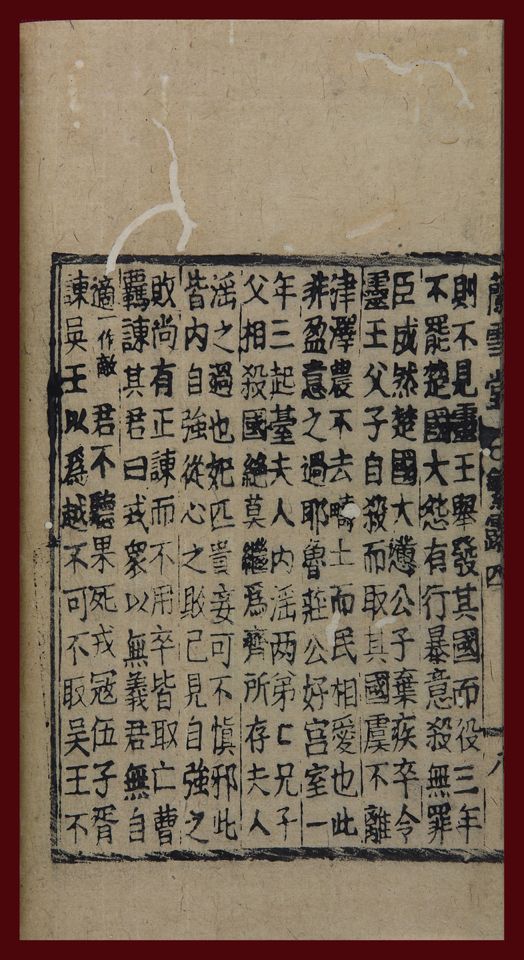 蘭雪堂
露四
八
則不見靈王舉發其國而役三年
不罷楚國大怨有行暴意殺無罪
臣成然楚國大懣公子棄疾卒令
靈王父子自殺而取其國虞不離
津澤農不去疇土而民相愛也此
非盈意之過耶魯莊公好宮室一
年三起臺夫人內淫两弟匕兄子
父相殺國絕莫繼爲齊所存夫人
淫之過也妃匹貴妾可不慎邪此
皆內自強從心之敗己見自強之
敗尚有正諫而不用卒皆取亡曹
羈諫其君曰戎衆以無義君無自
適一作敵君不聽果死戎寇伍子胥
諫吳王以爲越不可不取吳王不